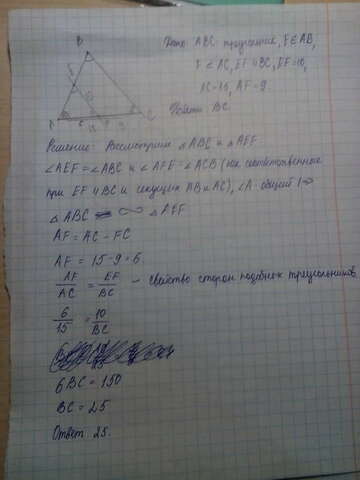 Дано: ABC-треугольник, E∈AB,
F∈AC, EF∥BC, EF=10,
AC=15, AF=9
Найти: BC.
B
E
10
A
F
15
9
C
Решение: Рассмотрим △ABC и △AEF
∠AEF=∠ABC и ∠AFE=∠ACB (как соответственные
при EF∥BC и секущих AB и AC), ∠A-общий ⇒
△ABC ∞ △AEF
AF=AC-FC
AF=15-9=6.
AF/AC = EF/BC - свойство сторон подобных треугольников
6/15 = 10/BC
6BC=150
BC=25
Ответ 25.